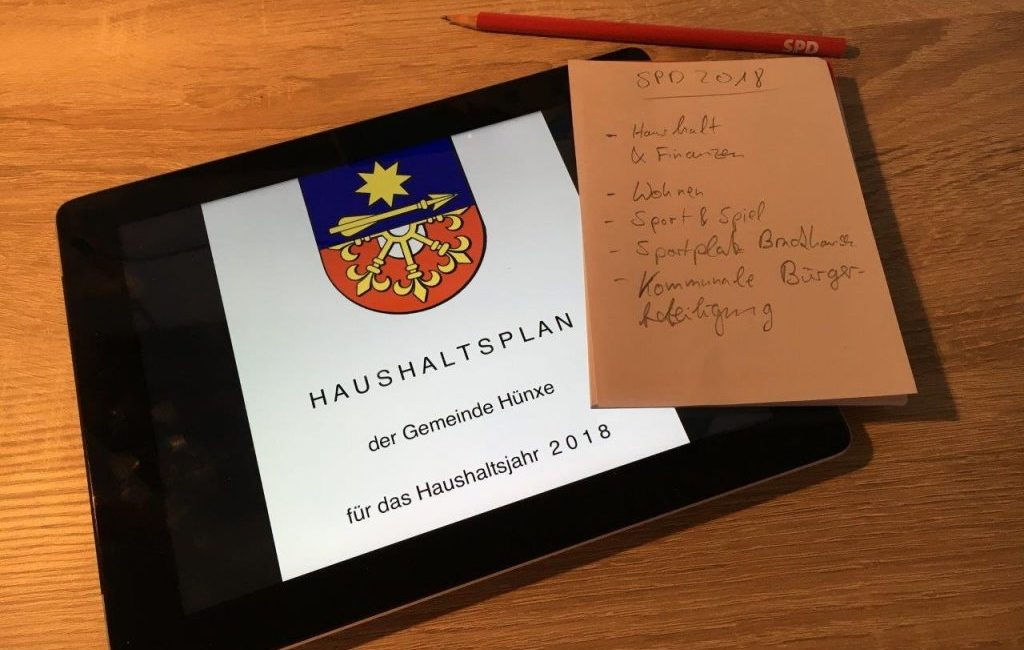 SPD
SPD 2018
- Haushalt
& Finanzen
- Wohnen
- Sport & Spiel
- Sportplatz Bruckhausen
- Kommunale Bürger-
beteiligung
HAUSHALTSPLAN
der Gemeinde Hünxe
für das Haushaltsjahr 2018